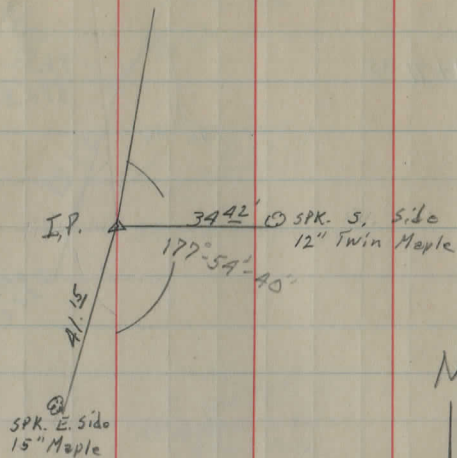 I.P.
34 42'
SPK. S. Side
12" Twin Maple
177°-54'-40"
41.15
N
SPK. E. Side
15" Maple